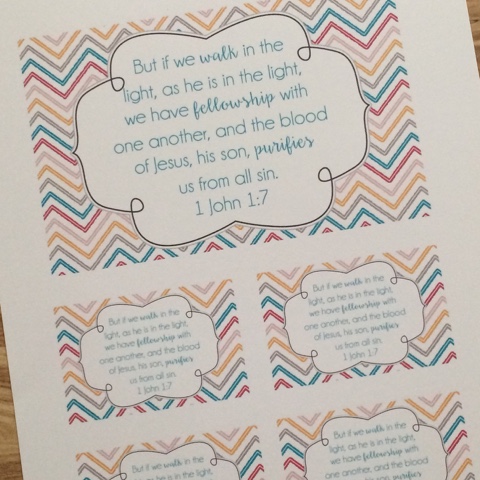 But if we walk in the
light, as he is in the light,
we have fellowship with
one another, and the blood
of Jesus, his son, purifies
us from all sin.
1 John 1:7
But if we walk in the
light, as he is in the light,
we have fellowship with
one another, and the blood
of Jesus, his son, purifies
us from all sin.
1 John 1:7
But if we walk in the
light, as he is in the light,
we have fellowship with
one another, and the blood
of Jesus, his son, purifies
us from all sin.
1 John 1:7
But if we walk in the
light, as he is in the light,
But if we walk in the
light, as he is in the light,
we have fellowship with
one another, and the blood